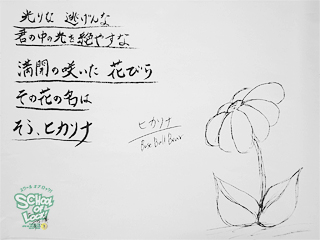 光りに 逃げんな
君の中の光を絶やすな
満開の咲いた 花びら
その花の名は
そう、ヒカリナ
ヒカリナ
Base Ball Bear
SCHOOL
OF
LOCK!